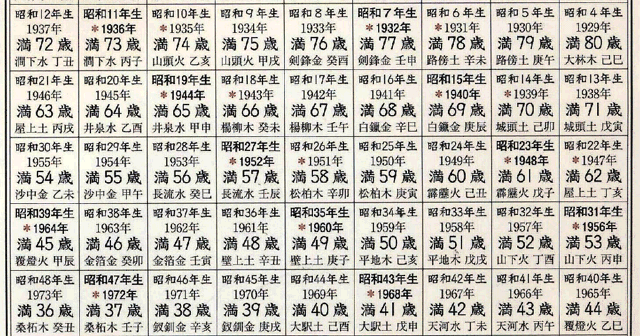 昭和12年生 昭和11年生 昭和10年生 昭和9年生 昭和8年生 昭和7年生 昭和6年生 昭和5年生 昭和4年生
1937年 *1936年 *1935年 1934年 1933年 *1932年 *1931年 1930年 1929年
満72歳 満73歳 満74歳 満75歳 満76歳 満77歳 満78歳 満79歳 満80歳
澗下水 丁丑 澗下水 丙子 山頭火 乙亥 山頭火 甲戌 劍鋒金 癸酉 劍鋒金 壬申 路傍土 辛未 路傍土 庚午 大林木 己巳
昭和21年生 昭和20年生 昭和19年生 昭和18年生 昭和17年生 昭和16年生 昭和15年生 昭和14年生 昭和13年生
1946年 1945年 *1944年 *1943年 1942年 1941年 *1940年 *1939年 1938年
満63歳 満64歳 満65歳 満66歳 満67歳 満68歳 満69歳 満70歳 満71歳
屋上土 丙戌 井泉水 乙酉 井泉水 甲申 楊柳木 癸未 楊柳木 壬午 白鑞金 辛巳 白鑞金 庚辰 城頭土 己卯 城頭土 戊寅
昭和30年生 昭和29年生 昭和28年生 昭和27年生 昭和26年生 昭和25年生 昭和24年生 昭和23年生 昭和22年生
1955年 1954年 1953年 *1952年 *1951年 1950年 1949年 *1948年 *1947年
満54歳 満55歳 満56歳 満57歳 満58歳 満59歳 満60歳 満61歳 満62歳
沙中金 乙未 沙中金 甲午 長流水 癸巳 長流水 壬辰 松柏木 辛卯 松柏木 庚寅 霹靂火 己丑 霹靂火 戊子 屋上土 丁亥
昭和39年生 昭和38年生 昭和37年生 昭和36年生 昭和35年生 昭和34年生 昭和33年生 昭和32年生 昭和31年生
*1964年 1963年 1962年 1961年 *1960年 1959年 1958年 1957年 *1956年
満45歳 満46歳 満47歳 満48歳 満49歳 満50歳 満51歳 満52歳 満53歳
覆燈火 甲辰 金箔金 癸卯 金箔金 壬寅 壁上土 辛丑 壁上土 庚子 平地木 己亥 平地木 戊戌 山下火 丁酉 山下火 丙申
昭和48年生 昭和47年生 昭和46年生 昭和45年生 昭和44年生 昭和43年生 昭和42年生 昭和41年生 昭和40年生
1973年 *1972年 1971年 1970年 1969年 *1968年 1967年 1966年 1965年
満36歳 満37歳 満38歳 満39歳 満40歳 満41歳 満42歳 満43歳 満44歳
桑柘木 癸丑 桑柘木 壬子 釵釧金 辛亥 釵釧金 庚戌 大駅土 己酉 大駅土 戊申 天河水 丁未 天河水 丙午 覆燈火 乙巳